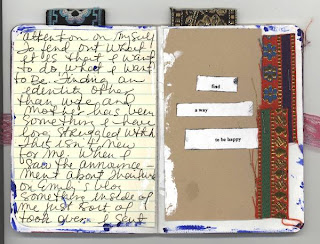 Attention on myself
To find out what
it is that I want
to do, what I want
to be. Finding an
identity other
than wife and
mother has been
something I have
long struggled with.
This isn't new
for me. When I
saw the announce-
ment about
on Emily's blog
something inside of
me just sort of
took over. I sent
find
a way
to be happy